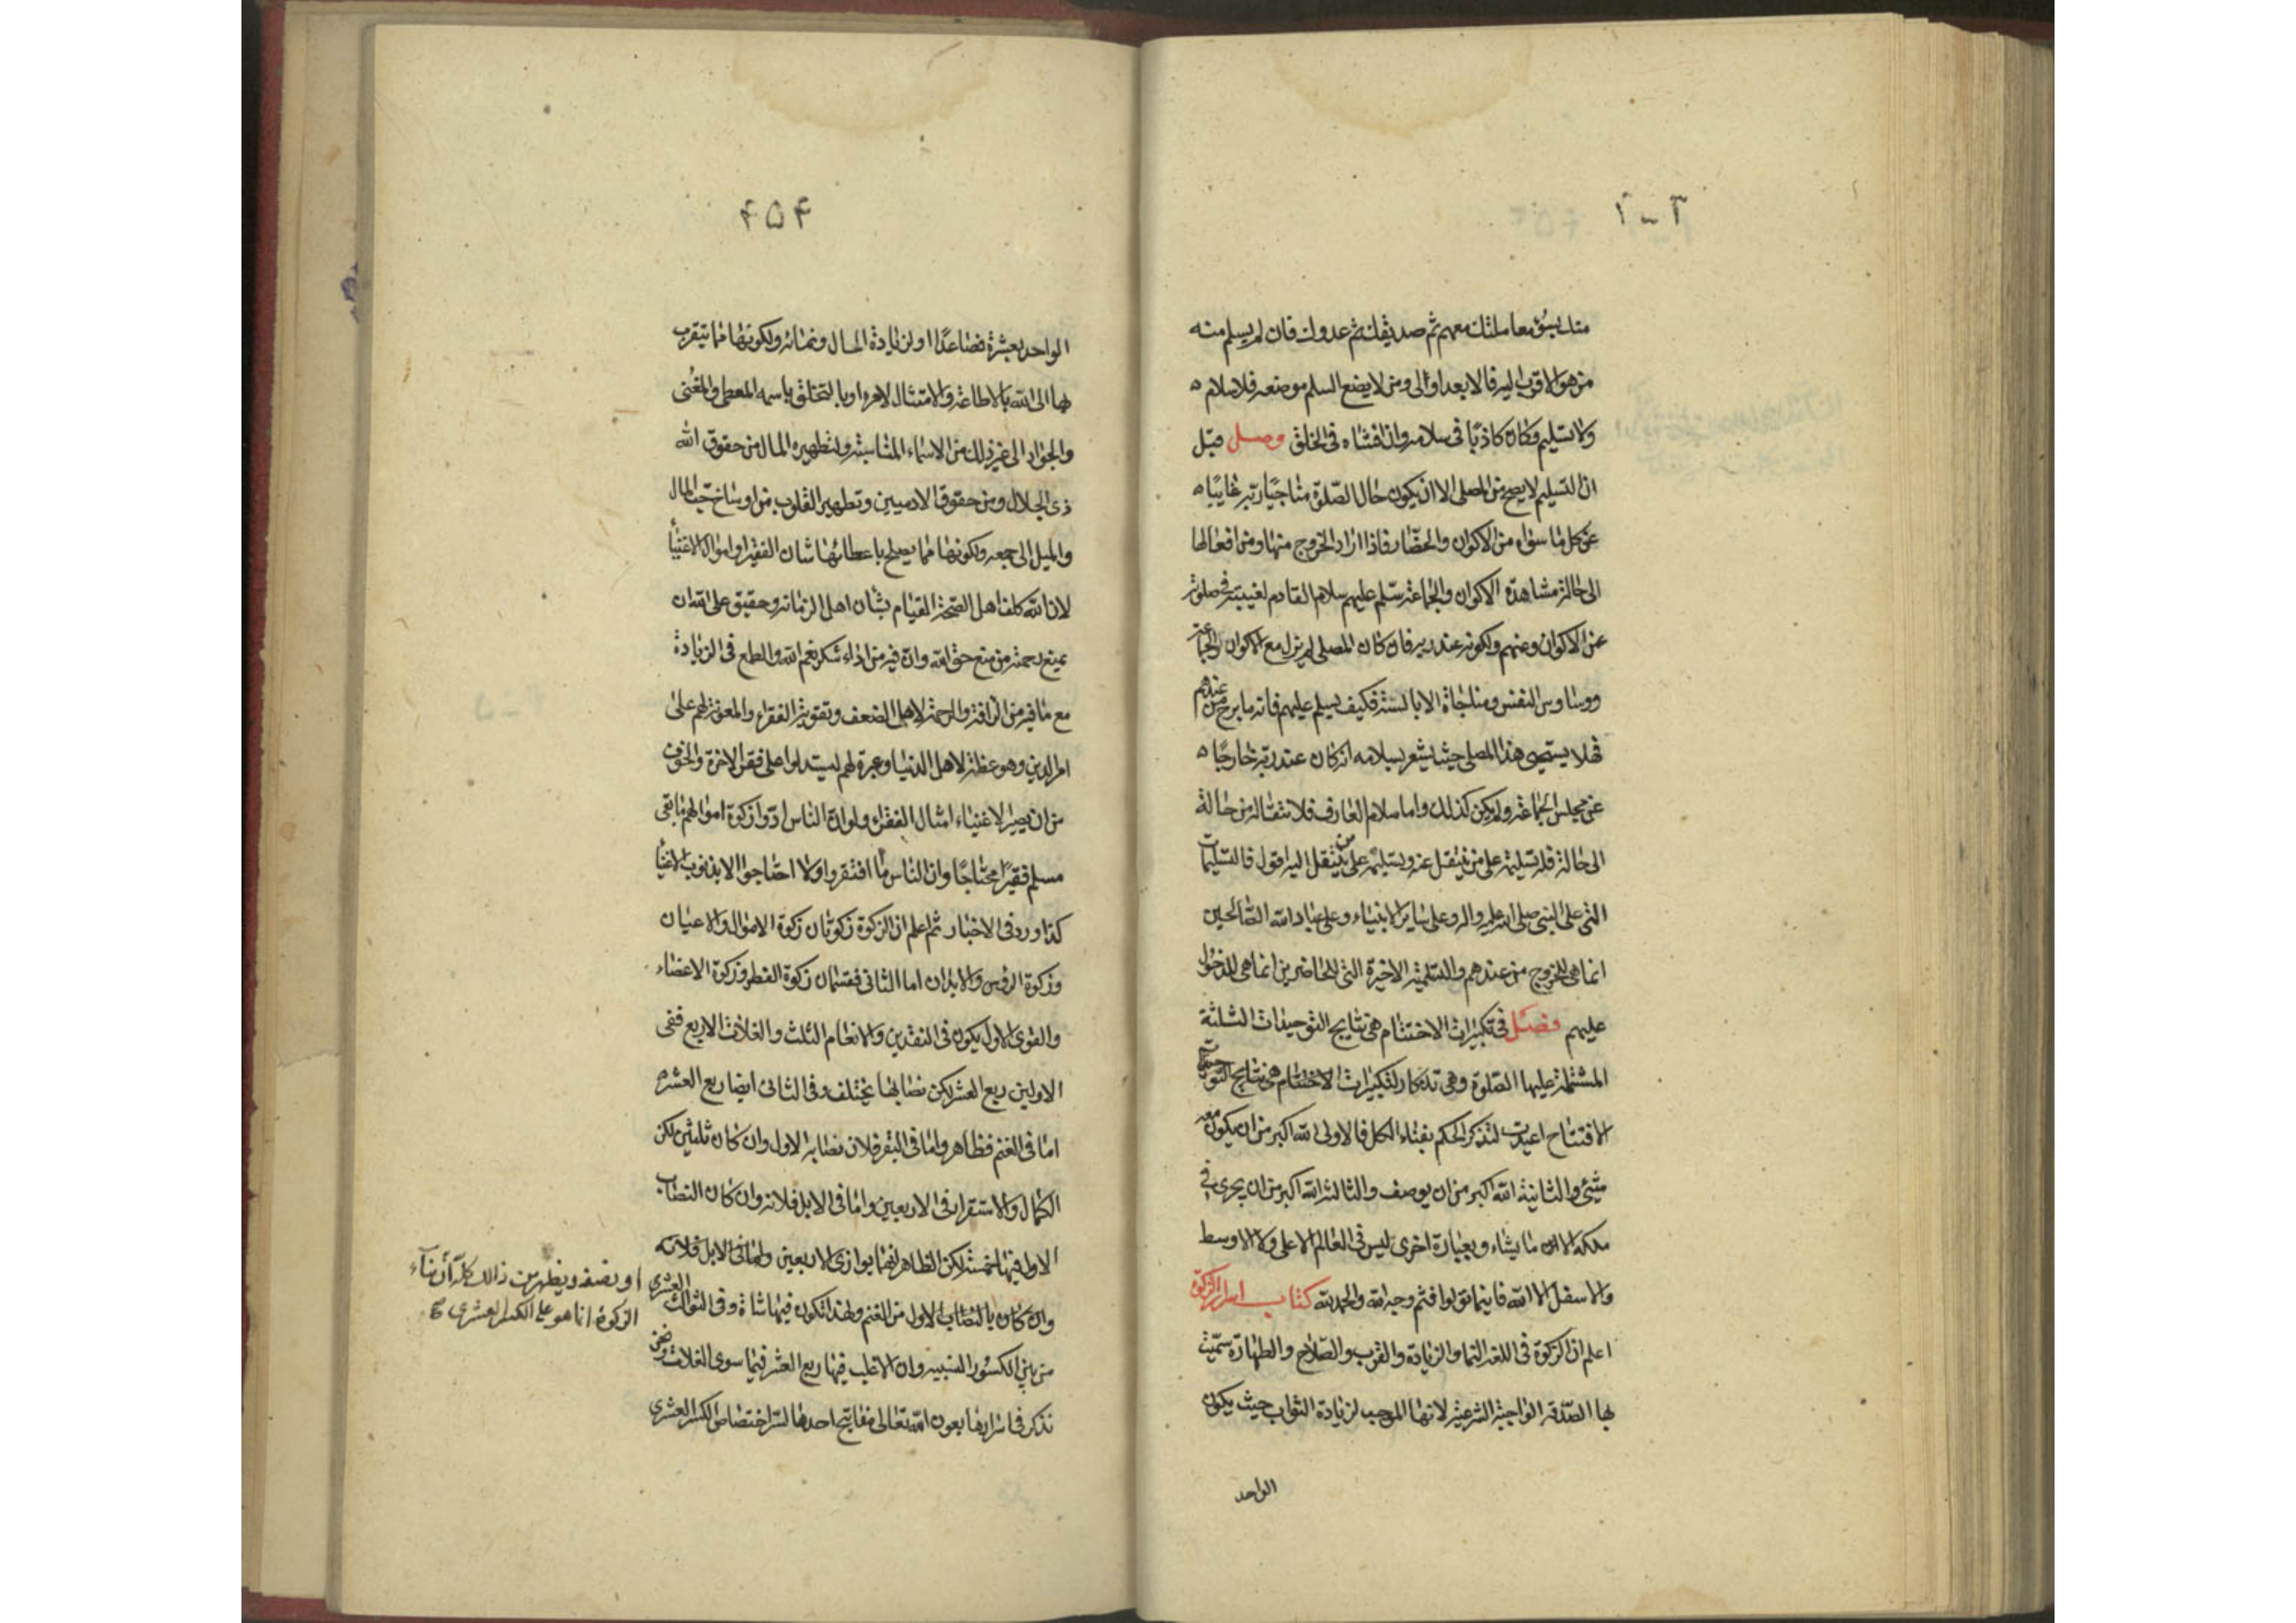 منك بسوء معاملتك معهم ثم صديقك ثم عدوك فان لم يسلم منه
من هو الاقرب اليه فالابعد اولى ومن لا يضع السلم موضعه فلا سلام
ولا تسليم وكان كاذبًا فى سلامه وان افشاه فى الخلق وصل قيل
ان التسليم لا يصح من المصلى الا ان يكون حال الصلوة مناجيًا ربه غايبًا
عن كل ما سواه من الاكوان والحضّار فاذا اراد الخروج منها ومن افعالها
الى حالة مشاهدة الاكوان والجماعة سلم عليهم سلام القادم لغيبته فى صلوته
عن الاكوان وعنهم ولكونه عند ربه فان كان المصلى لم يزل مع الاكوان والجماعة
ووساوس النفس ومناجاة الابالسة فكيف يسلم عليهم فانه ما برح من عندهم
فهلا يستحيى هذا المصلى حيث يشعر بسلامه انه كان عند ربه خارجًا
عن مجلس الجماعة ولم يكن كذلك واما سلام العارف فلانتقاله من حالة
الى حالة فله تسليمة على من ينتقل عنه وتسليمة على من ينتقل اليه اقول فالتسليمات
التى على النبى صلى الله عليه واله وعلى ساير الانبياء وعلى عباد الله الصالحين
انما هى للخروج من عندهم والتسلمية الاخيرة التى للحاضرين انما هى للدخول
عليهم فصل فى تكبيرات الاختتام هى نتايج التوحيدات الثلثة
المشتملة عليها الصلوة وهى تذكار لتكبيرات الاختتام هى نتايج التوحيدات
الافتتاح اعيدت لتذكر الحكم بفناء الكل فالاولى الله اكبر من ان يكون معه
شئ والثانية الله اكبر من ان يوصف والثالثة الله اكبر من ان يجرى فى
ملكه الا ما يشاء وبعبارة اخرى ليس فى العالم الاعلى ولا الاوسط
والاسفل الا الله فاينما تولوا فثم وجه الله والحمد لله كتاب اسرار الزكوة
اعلم ان الزكوة فى اللغة النما والزيادة والقرب والصلاح والطهارة سميت
بها الصدقة الواجبة الشرعية لانها الموجب لزيادة الثواب حيث يكون
الواحد
۴۵۴
الواحد بعشرة فصاعدًا او لزيادة المال ونمائه ولكونها مما يتقرب
بها الى الله بالاطاعة والامتثال لامره او بالتخلق باسمه المعطى والمغنى
والجواد الى غير ذلك من الاسماء المناسبة ولتطهيره المال من حقوق الله
ذى الجلال ومن حقوق الادميين وتطهير القلوب من اوساخ حب المال
والميل الى جمعه ولكونها مما يصلح باعطائها شان الفقراء واموال الاغنيأ
لان الله كلف اهل الصحة القيام بشان اهل الزمانة وحقيق على الله ان
يمنع رحمته من منع حق الله وان فيه من اداء شكر نعم الله والطمع فى الزيادة
مع ما فيه من الرافة والرحمة لاهل الضعف وتقوية الفقراء والمعونة لهم على
امر الدين وهو عظة لاهل الدنيا وعبرة لهم ليستدلوا على فقر الاخرة والخوف
من ان يصير الاغنياء امثال الفقراء ولو ان الناس ادوا زكوة اموالهم ما بقى
مسلم فقيرًا محتاجًا وان الناس ما افتقروا ولا احتاجوا الا بذنوب الاغنيأ
كذا ورد فى الاخبار ثم اعلم ان الزكوة زكوتان زكوة الاموال والاعيان
وزكوة الرؤس والابدان اما الثانى فقسمان زكوة الفطر وزكوة الاعضاء
والقوى الاول يكون فى النقدين والانعام الثلث والغلات الاربع ففى
الاولين ربع العشر لكن نصابها يختلف وفى الثانى ايضا ربع العشر
اما فى الغنم فظاهر واما فى البقر فلان نصابه الاول وان كان ثلثين لكن
الكمال والاستقرار فى الاربعين واما فى الابل فلانه وان كان النصاب
الاول فيها خمسة لكن الظاهر انها يوازى الاربعين واما فى الابل فلانه
وان كان بالنصاب الاول من الغنم ولهذا تكون فيها شاة وفى الثوالث العشرى
او نصفه ويظهر من ذالك كله أن بنآء
الزكوة انما هو على الكسر العشرى
من بين الكسور النسبية وان الاغلب فيها ربع العشر فيما سوى الغلات ونحن
نذكر فى اسرارها بعون الله تعالى مفاتيح احدها لسر اختصاص الكسر العشرى